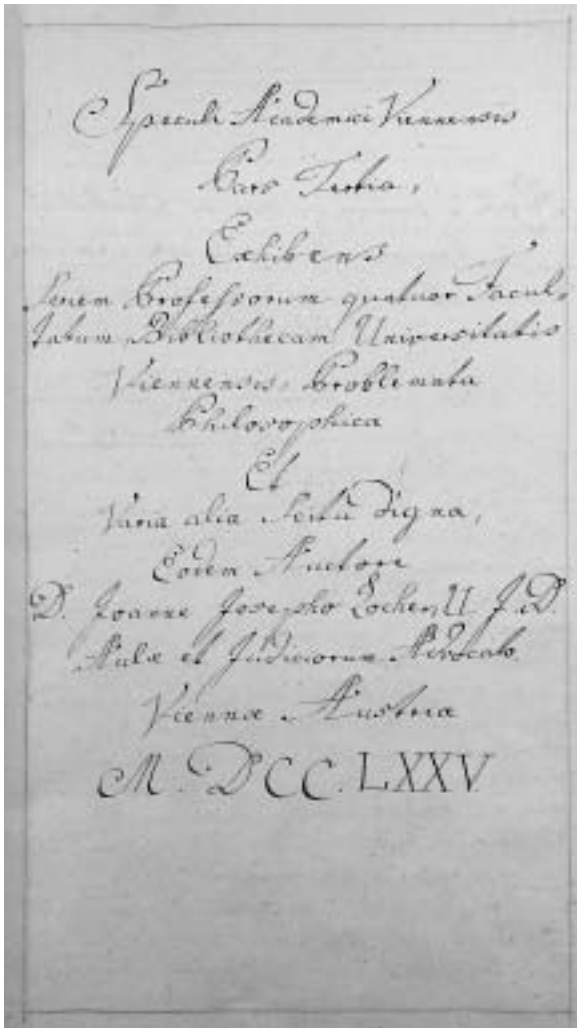 Speculi Academici Viennensis
Pars Tertia,
Exhibens
Seriem Professorum quatuor Facul-
tatum Bibliothecam Universitatis
Viennensis, Problemata
Philosophica
Et
Varia alia Scitu digna,
Eodem Auctore
D. Joanne Josepho Locher U J. D.
Aulæ et Judiciorum Advocato
Viennæ Austriæ
M. DCC. LXXV.